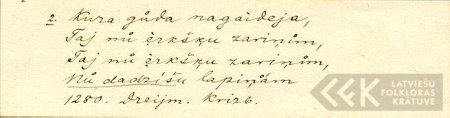 2. Kura gůda nagaideja,
Taj nů èrkšķu zariņim,
Taj nů èrkšķu zariņim,
Nů dadzišu lapiņām
1280. Dreijm. Krizb.
LATVIEŠU
FOLKLORAS
KRĀTUVE